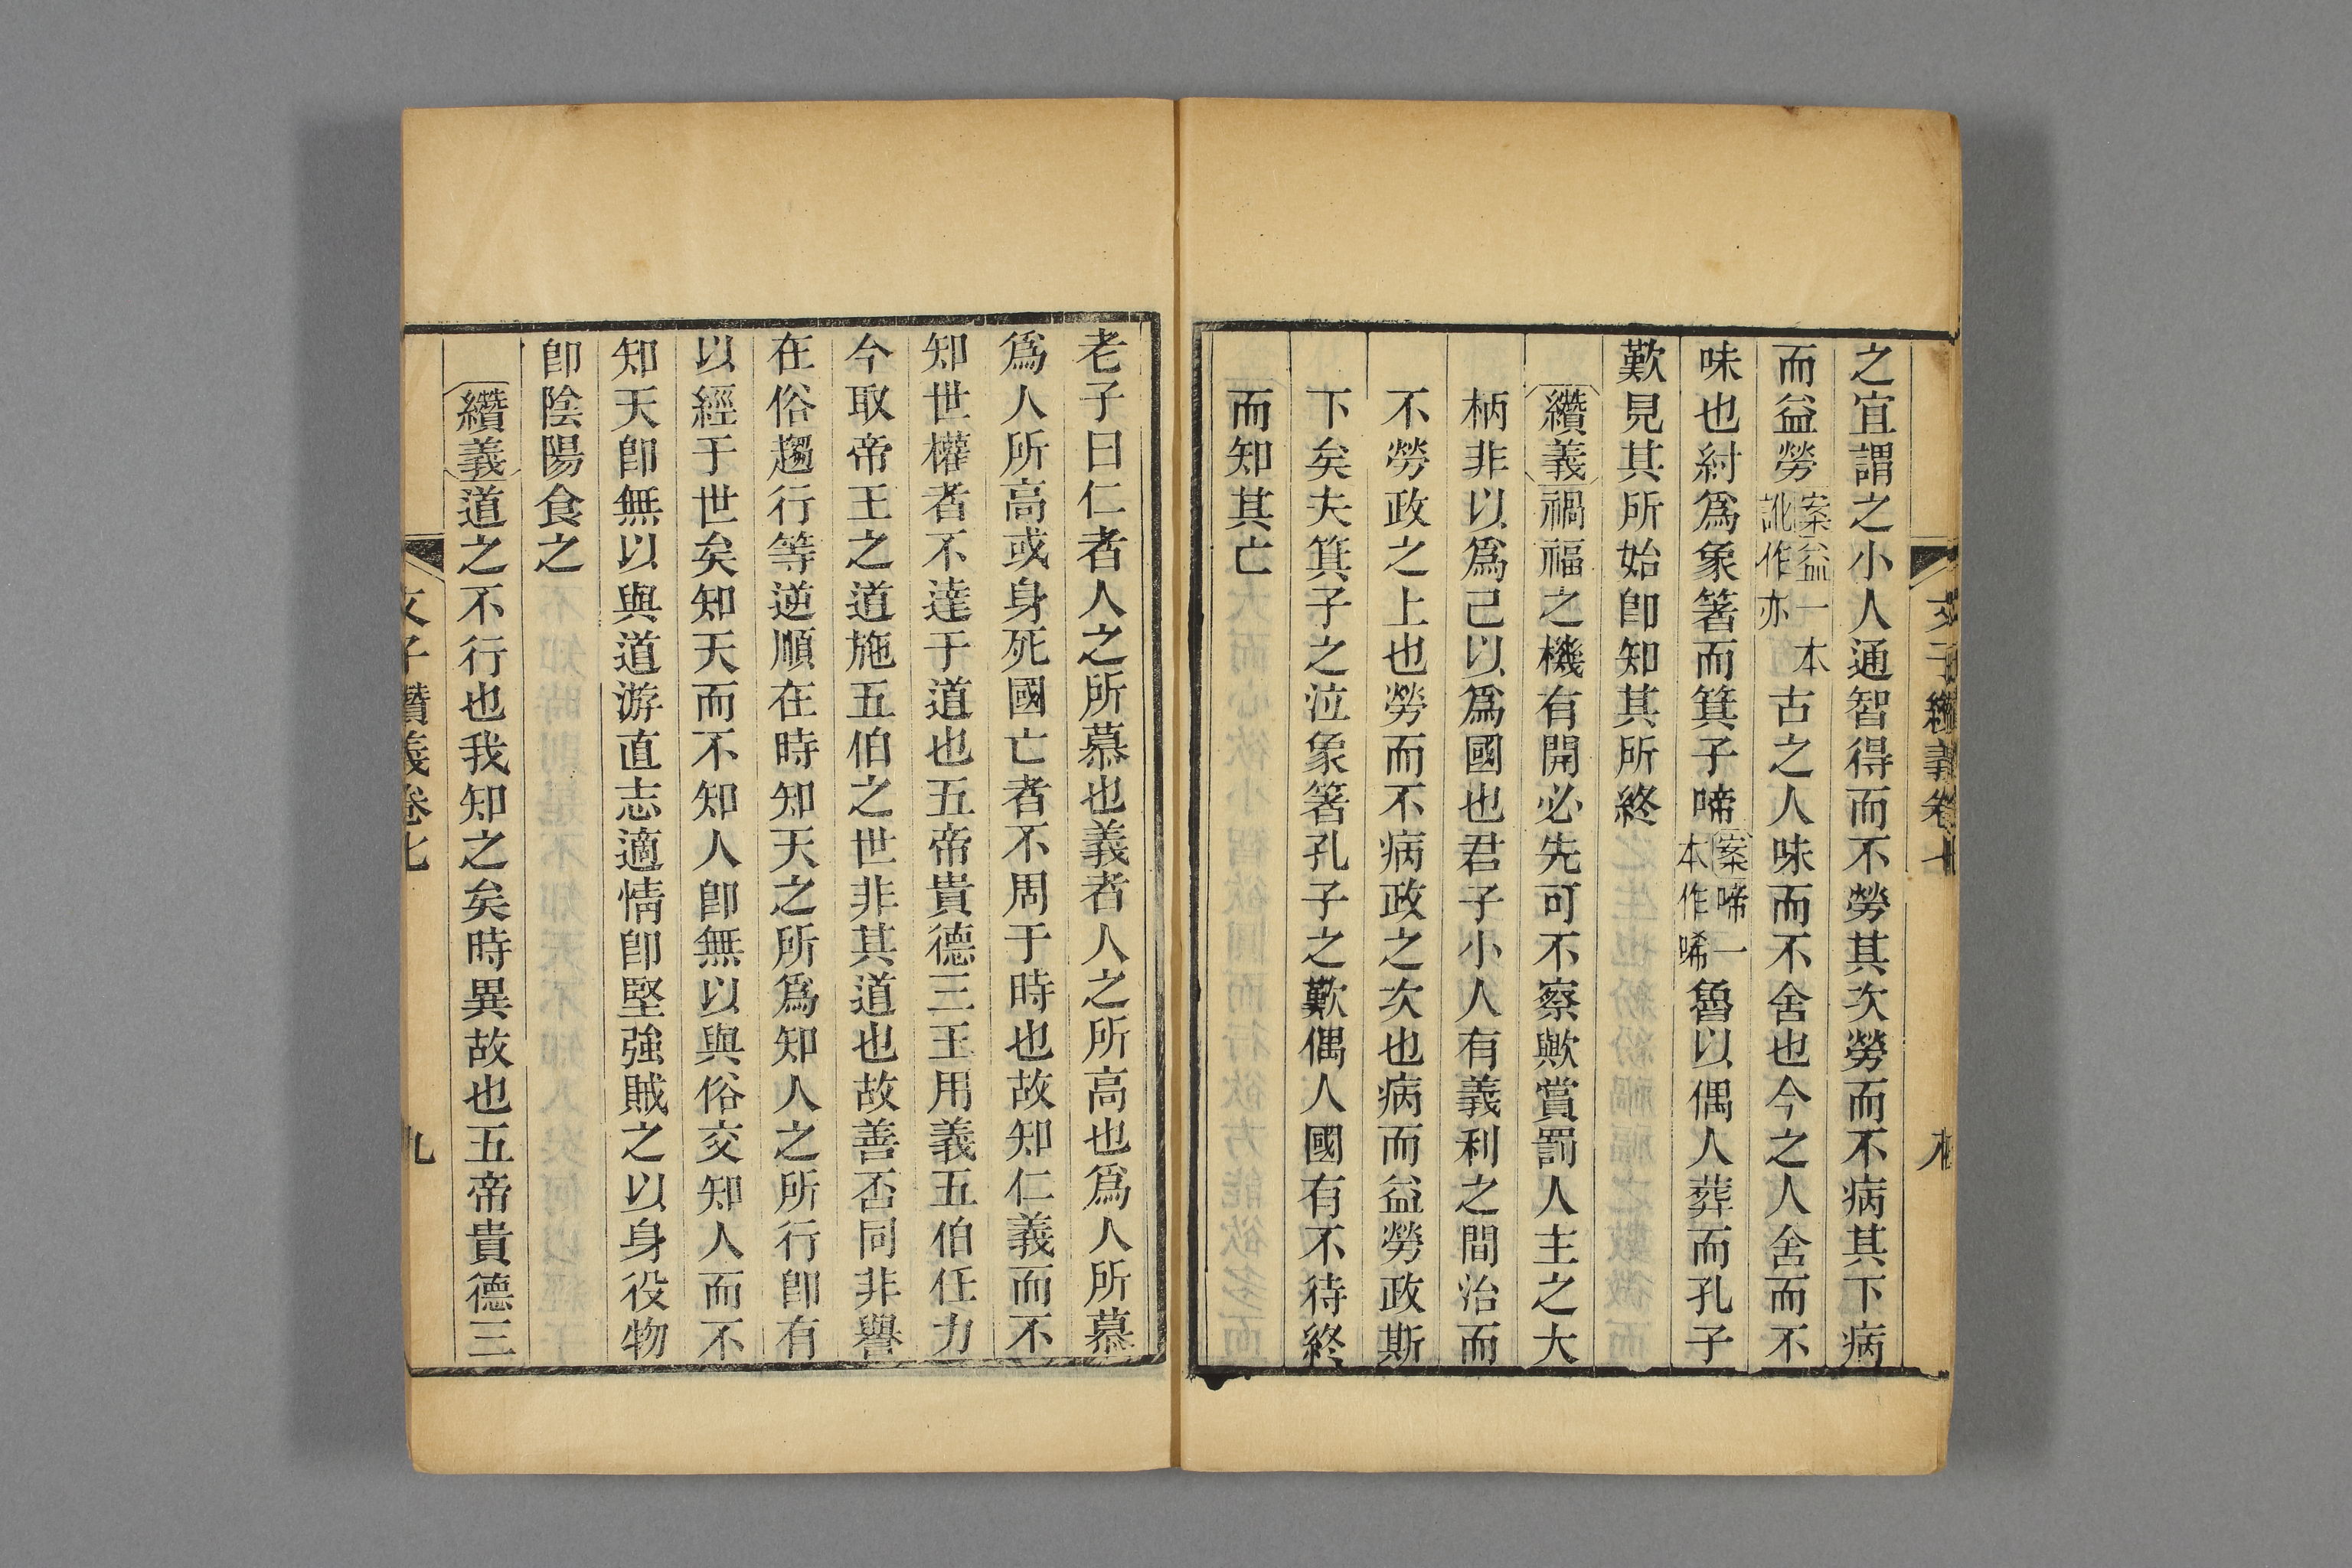 之宜謂之小人通智得而不勞其次勞而不病其下病
而益勞案益一本訛作亦古之人味而不舍也今之人舍而不
味也紂爲象箸而箕子啼案啼一本作唏魯以偶人葬而孔子
歎見其所始卽知其所終
纘義禍福之機有開必先可不察歟賞罰人主之大
柄非以爲己以爲國也君子小人有義利之間治而
不勞政之上也勞而不病政之次也病而益勞政斯
下矣夫箕子之泣象箸孔子之歎偶人國有不待終
而知其亡
老子曰仁者人之所慕也義者人之所高也爲人所慕
爲人所高或身死國亡者不周于時也故知仁義而不
知世權者不達于道也五帝貴德三王用義五伯任力
今取帝王之道施五伯之世非其道也故善否同非譽
在俗趨行等逆順在時知天之所爲知人之所行卽有
以經于世矣知天而不知人卽無以與俗交知人而不
知天卽無以與道游直志適情卽堅強賊之以身役物
卽陰陽食之
纘義道之不行也我知之矣時異故也五帝貴德三
文子纘義卷七
九